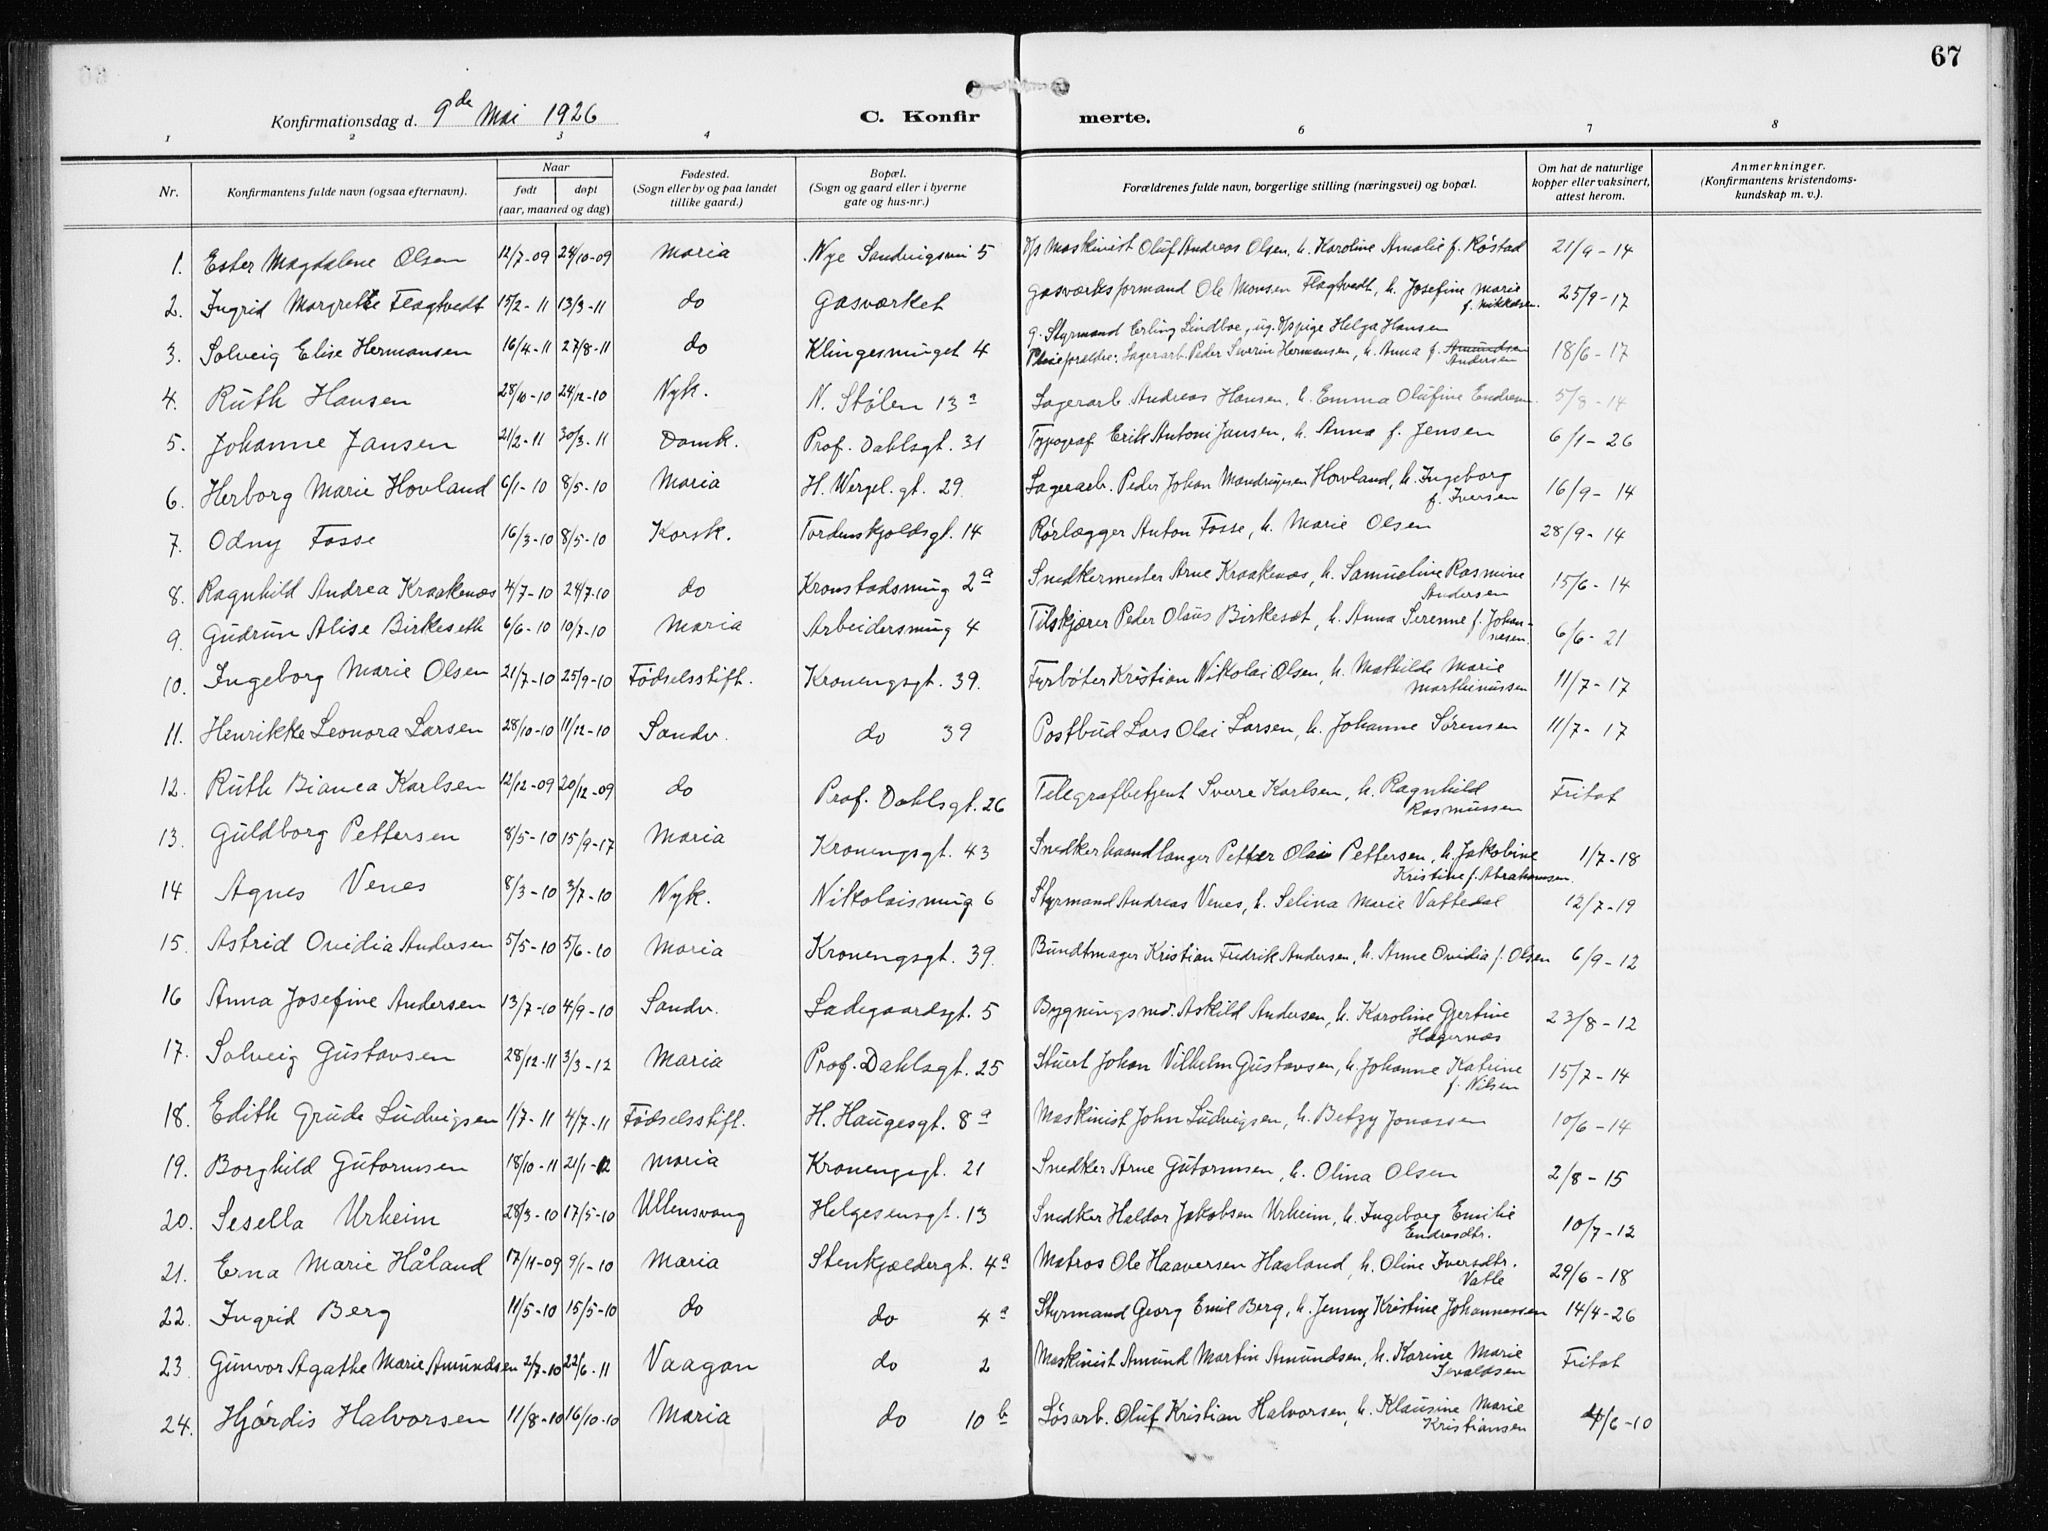 67
Konfirmationsdag d. 9de Mai 1926
C. Konfirmerte.
1 2 3 4 6 7 8
Nr. Konfirmantens fulde navn (ogsaa efternavn). Naar født døpt (aar, maaned og dag) Fødested. (Sogn eller by og paa landet tillike gaard.) Bopæl. (Sogn og gaard eller i byerne gate og hus-nr.) Forældrenes fulde navn, borgerlige stilling (næringsvei) og bopæl. Om hat de naturlige kopper eller vaksinert, attest herom. Anmerkninger. (Konfirmantens kristendoms-kundskap m. v.).
1. Ester Magdalene Olsen 12/7-09 24/10-09 Maria Nye Sandvigsvei 5 Maskinist Oluf Andreas Olsen, h. Karoline Amalie f. Røstad 21/9-14
2. Ingrid Margrethe Flagtvedt 15/2-11 13/3-11 do Gasværket Gasverksformand Ole Monsen Flagtvedt, h. Josefine Marie f. Mikkelsen. 25/9-17
3. Solveig Elise Hermansen 16/4-11 27/8-11 do Klingesmuget 4 g. Styrmand Erling Lindboe, ug. Helga Hansen
Pleieforældre: Lagerarb. Peder Severin Hermansen, h. Anna f. Amundsen Andersen 18/6-17
4. Ruth Hansen 28/10-10 24/12-10 Nyk. N. Stølen 13a Lagerarb. Andreas Hansen, h. Emma Olufine Endresen 5/8-14
5. Johanne Jansen 21/2-11 30/3-11 Domk. Prof. Dahlsgt. 31 Typograf Erik Antoni Jansen, h. Anna f. Jensen 6/1-26
6. Herborg Marie Hovland 6/1-10 8/5-10 Maria H. Wergel. gt. 29. Lagerarb. Peder Johan Mandrupsen Howland, h. Ingeborg f. Iversen 16/9-14
7. Odny Fosse 16/3-10 8/5-10 Korsk. Tordenskjoldsgt. 14 Rørlægger Anton Fosse, h. Marie Olsen 28/9-14
8. Ragnhild Andrea Kraakenæs 4/7-10 24/7-10 do Kronstadsmug 2a Snedkermester Arne Kraakenæs, h. Samueline Rasmine Andersen 15/6-14
9 Gudrun Alise Birkeseth 6/6-10 10/7-10 Maria Arbeidersmug 4 Tilskjærer Peder Olaus Birkesæt, h. Anna Serenne f. Johannesen. 6/6-21
10. Ingeborg Marie Olsen 21/7-10 25/9-10 Fødselsstift. Kroneng​sgt. 39. Fyrbøter Kristian Nikolai Olsen, h. Mathilde Marie Marthinussen 11/7-17
11. Henrikke Leonora Larsen 28/10-10 11/12-10 Sandv. do 39 Postbud Lars Olai Larsen, h. Johanne Sørensen 11/7-17
12. Ruth Bianca Karlsen 12/12-09 20/12-09 do Prof. Dahlsgt. 26 Telegrafbetjent Sverre Karlsen, h. Ragnhild Rasmussen Fritat
13. Guldborg Pettersen 8/5-10 15/9-17 Maria Kronengsgt. 43 Snedkerhaandlanger Petter Olai Pettersen, h. Jakobine Kristine f. Abrahamsen. 1/7-18
14 Agnes Venes 8/3-10 3/7-10 Nyk. Nikolaismug 6 Styrmand Andreas Venes, h. Selina Marie Vattedal 12/7-19
15. Astrid Ovidia Andersen 5/5-10 5/6-10 Maria Kronengsgt. 39. Bundtmager Kristian Fredrik Andersen, h. Anne Ovidia f. Olsen 6/9-12
16 Anna Josefine Andersen 13/7-10 4/9-10 Sandv. Ladegaardsgt. 5 Bygningsmd. Askild Andersen, h. Karoline Gjertine Hagernæs 23/8-12
17. Solveig Gustavsen 28/12-11 3/3-12 Maria Prof. Dahlsgt. 25 Stuert Johan Vilhelm Gustavsen, h. Johanne Katrine f. Nilsen 15/7-14
18. Edith Grude Ludvigsen 1/7-11 4/7-11 Fødselsstift. H. Haugesgt. 8a Maskinist John Ludvigsen, h. Betzy Jonassen 10/6-14
19. Borghild Gutormsen 18/10-11 21/1-12 Maria Kronengsgt. 21 Snedker Arne Gutormsen, h. Olina Olsen 2/8-15
20. Sesella Urheim 28/3-10 17/5-10 Ullensvang Helgesensgt. 13 Snedker Haldor Jakobsen Urheim, h. Ingeborg Emilie Endresdtr. 10/7-12
21. Erna Marie Håland 17/11-09 9/1-10 Maria Stenkjældergt. 4a Matros Ole Haaversen Haaland, h. Oline Iversdtr. Vatle 29/6-18
22. Ingrid Berg 11/5-10 15/5-10 do do 4a Styrmand Georg Emil Berg, h. Jenny Kristine Johannessen 14/4-26
23 Gunvor Agathe Marie Amundsen 2/7-10 22/6-11 Vaagan do 2 Maskinist Amund Martin Amundsen, h. Karine Marie Sevaldsen Fritat
24. Hjørdis Halvorsen 11/8-10 16/10-10 Maria do 10b Løsarb. Oluf Kristian Halvorsen, h. Klausine Marie Kristiansen 4/6-10